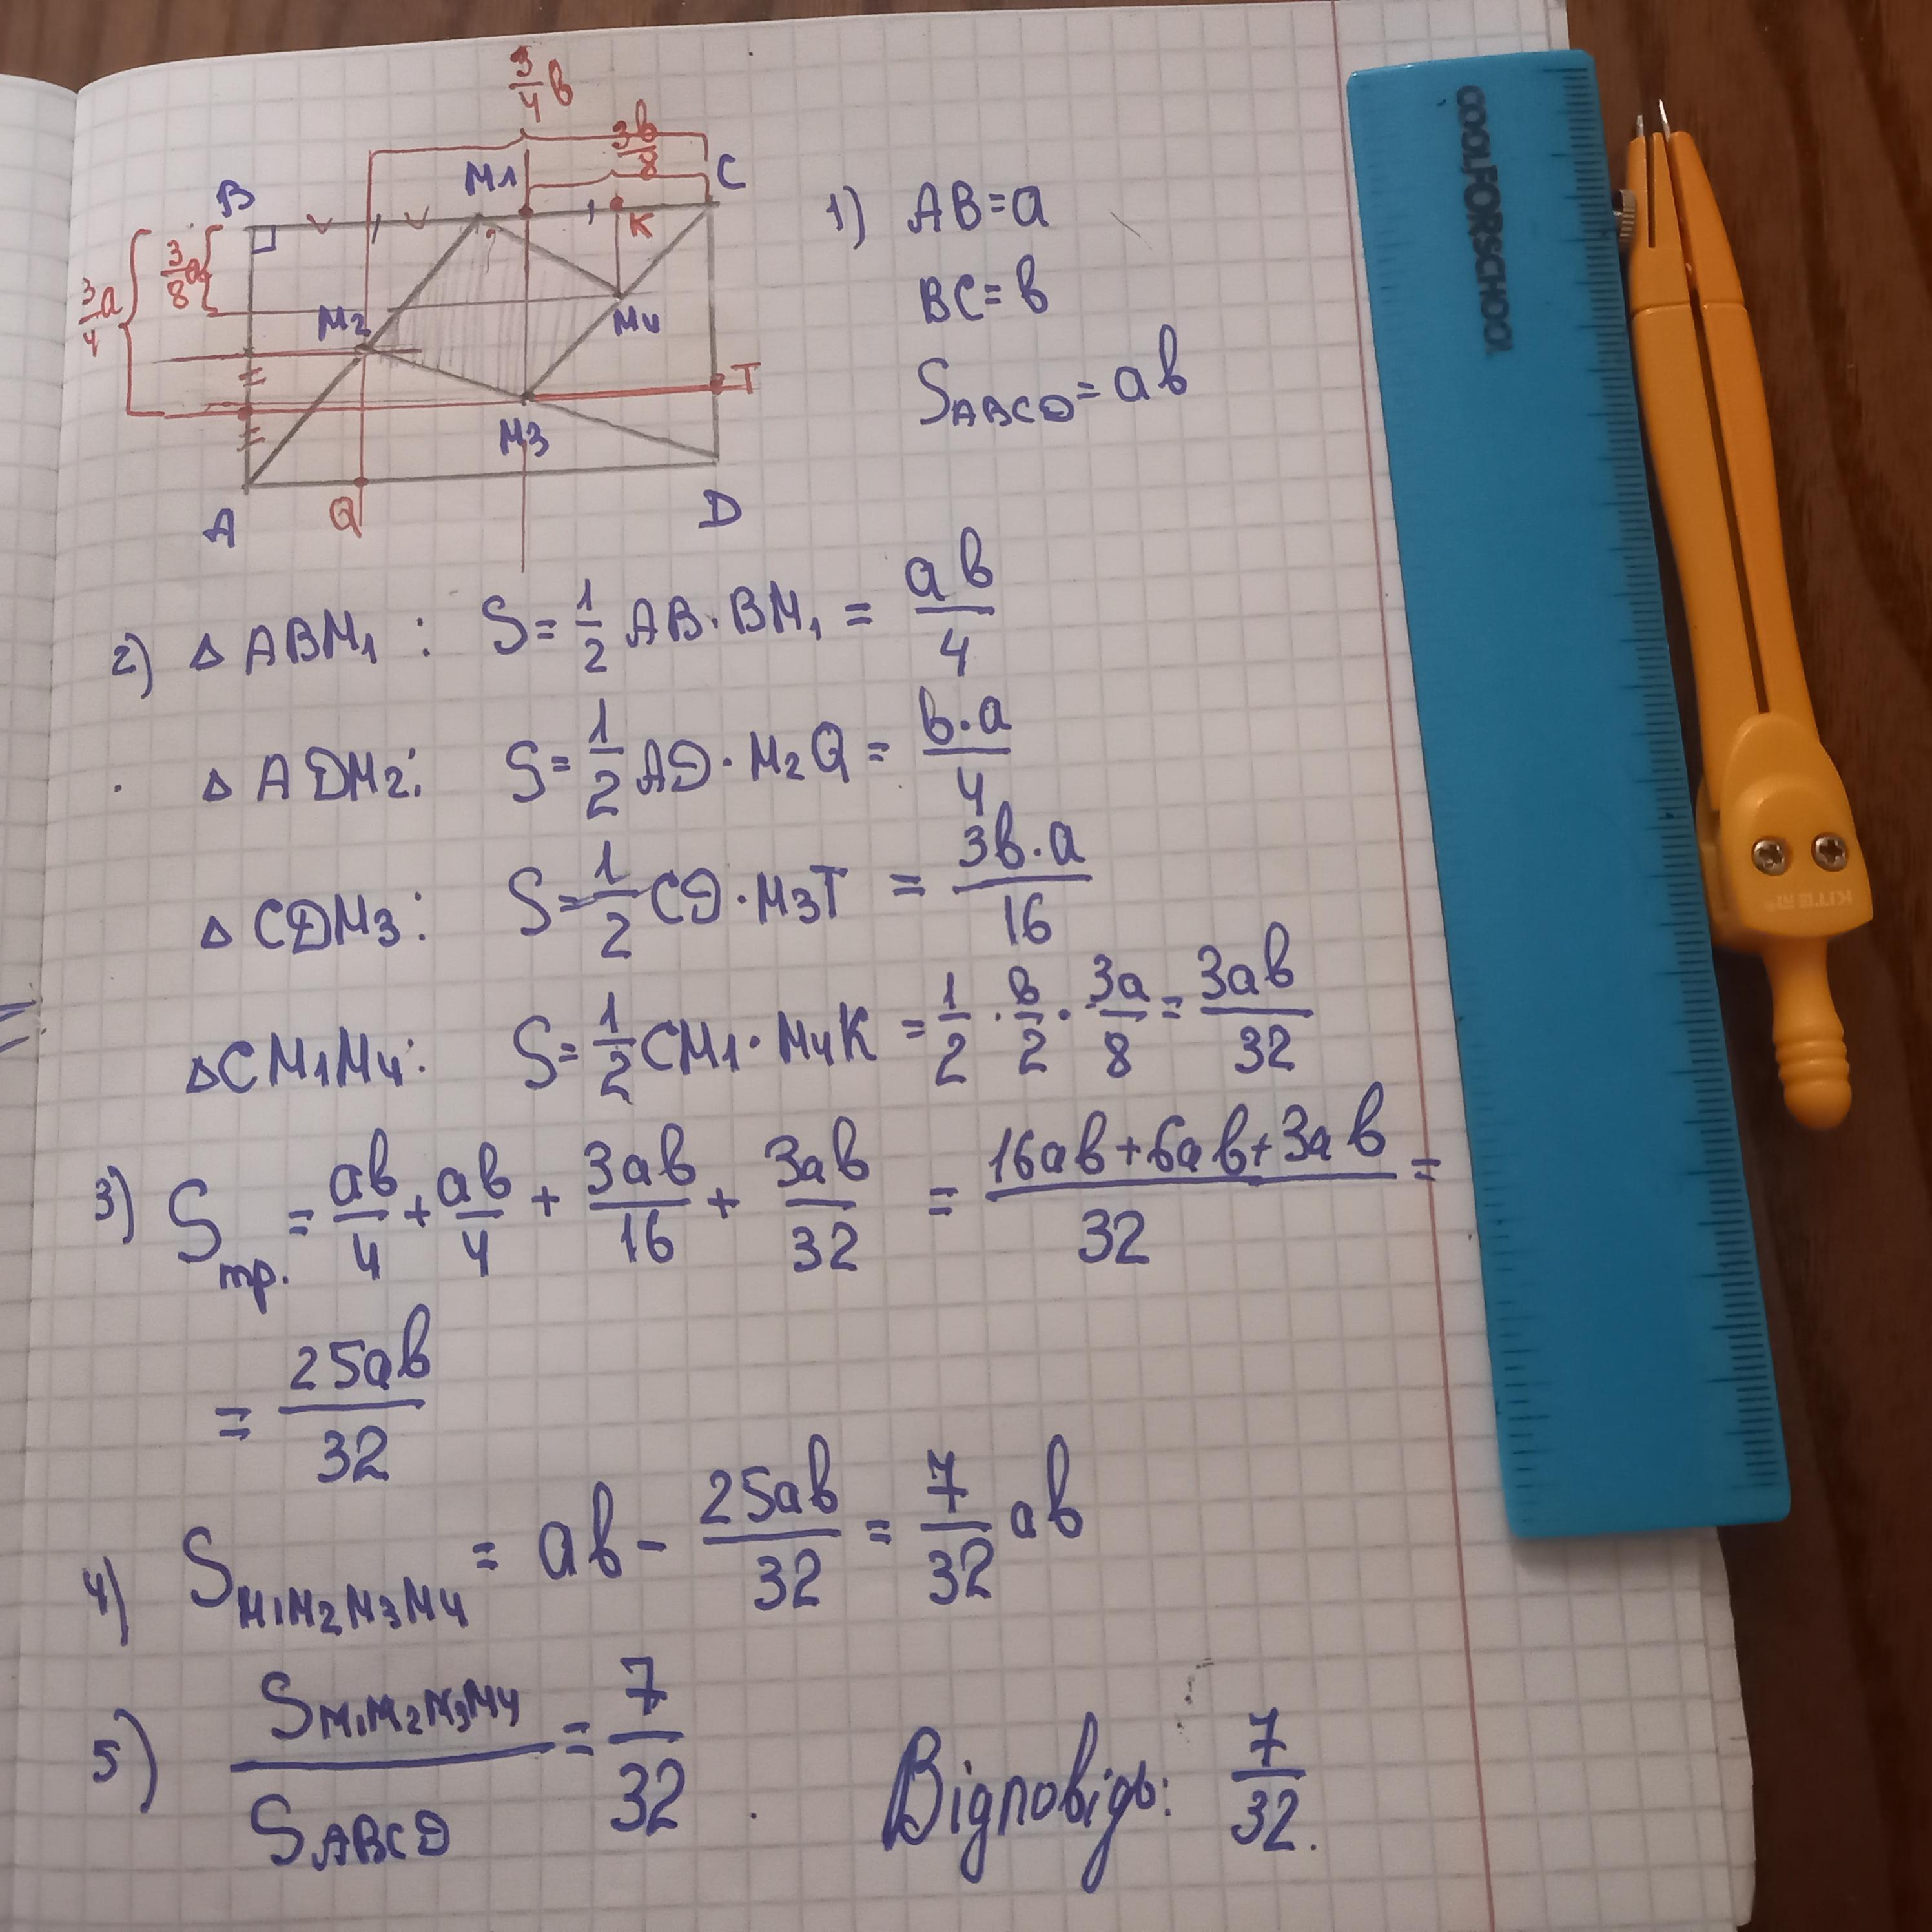 3/4 в
3в/8
B
M1
C
K
3/4 a
3/8 a
M2
M4
T
M3
A
Q
D
1) AB=a
BC=в
S ABCD = aв
2) △ ABM1 : S = 1/2 AB·BM1 = aв/4
△ ADM2: S = 1/2 AD·M2Q = в·a/4
△ CDM3: S = 1/2 CD·M3T = 3в·a/16
△CM1M4: S = 1/2 CM1·M4K = 1/2 · в/2 · 3a/8 = 3aв/32
3) S тр. = aв/4 + aв/4 + 3aв/16 + 3aв/32 = 16aв+6aв+3aв/32 =
= 25aв/32
4) S M1M2M3M4 = aв - 25aв/32 = 7/32 aв
5) S M1M2M3M4 / S ABCD = 7/32 .
Відповідь: 7/32.
COOLFORSCHOOL
KITE